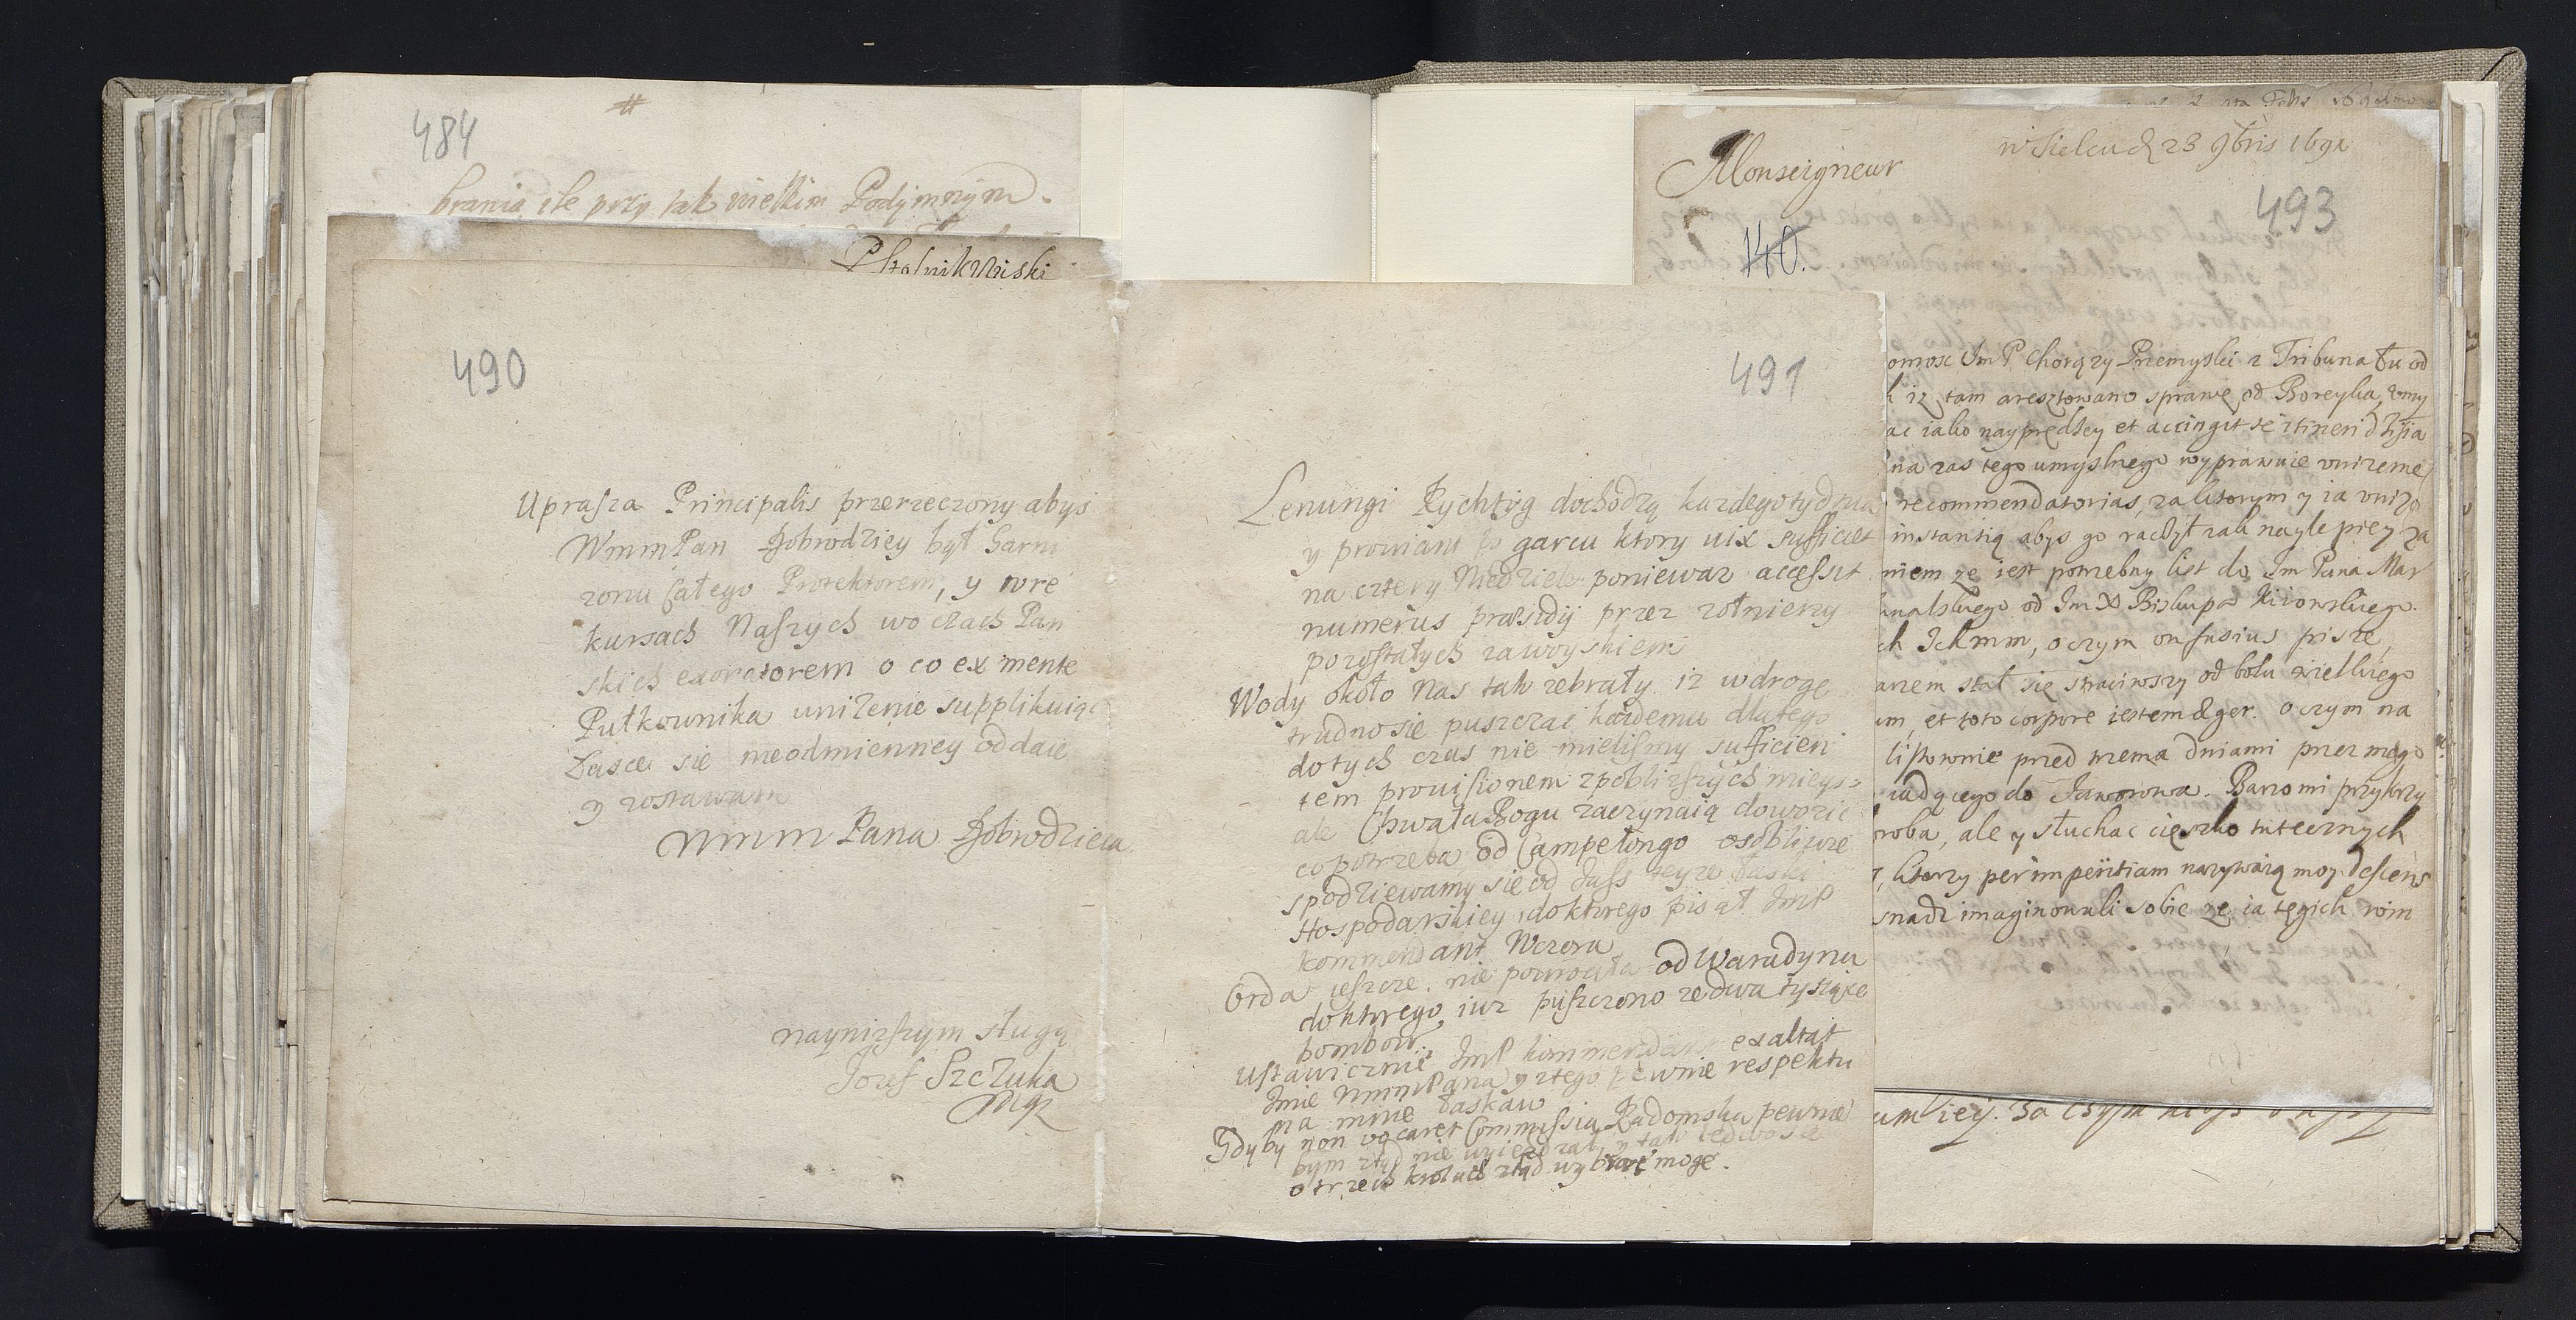 484
#
brania ile przy tak wielkim Podymnym.
P Stolnik Wiski
490
Uprasza Principalis przerzeczony abyś
WmmPan Dobrodziey był Garni
zonu całego Protektorem, y w re
kursach Naszych w oczach Pań
skich exoratorem o co ex mente
Pułkownika uniżenie supplikuiąc
Łasce się nieodmienney oddaię
y zostawam
Wmm Pana Dobrodzieia
nayniższym sługą
Jozef Szczuka
491
Lenungi Rychtyg dochodzą kazdego tydznia
y prowiant po garcu ktory vix sufficiet
na cztery Niedziele poniewaz accessit
numerus præsidij przez zołnierzy
pozostałych za woyskiem
Wody około Nas tak zebrały iz w drogę
trudno sie puszczac kazdemu dlatego
do tych czas nie mielismy sufficien
tem provisionem z pobliższych mieys=
ale Chwała Bogu zaczynaią dowozic
co potrzeba od Campelongo osobliwie
spodziewamy się od Jass teyze łaski
Hospodarskiey, do ktorego pisał ImP
Kommendant Wczora
Orda ieszcze nie powrociła od Waradynu
do ktorego iuz puszczono ze dwa tysiące
bombow.
Ustawicznie ImP kommendant exaltat
Imie WmmPana y z tego pewnie respektu
na mnie łaskaw
Gdyby non vocaret Commissia Radomska pewnie
bym ztąd nie wyiezdzał, y tak ledwo sie
o trzech krolach ztąd wybrać mogę.
w Sielcu d 23 9bris 1691
Monseigneur
493
140.
omosc ImP Chorązy Przemyski z Tribunału od
k iz tam aresztowano sprawę od Boreyka, umy
ac iako nayprędzey et accingit se itineri dzisia
na zas tego umyslnego wyprawuie unizenie
recommendatorias, za ktorym y ia unizo
instantią abys go raczył zali naylepiey za
niem ze iest potrzebny list do Im Pana Mar
unalskiego od Im X Biskupa Kiiowskiego.
ch Ichmm, o czym on fusius pisze,
anem stał się straciwszy od bolu wielkiego
um, et toto corpore iestem æger. o czym na
listownie przed trzema dniami przez mego
iadącego do Jaworowa. Barzo mi przykrzy
oroba, ale y słuchac ciężko tutecznych
, ktorzy per imperitiam nazywaią moy defcens
snadz imaginowali sobie ze ia tęgich win
um iey. Za czym